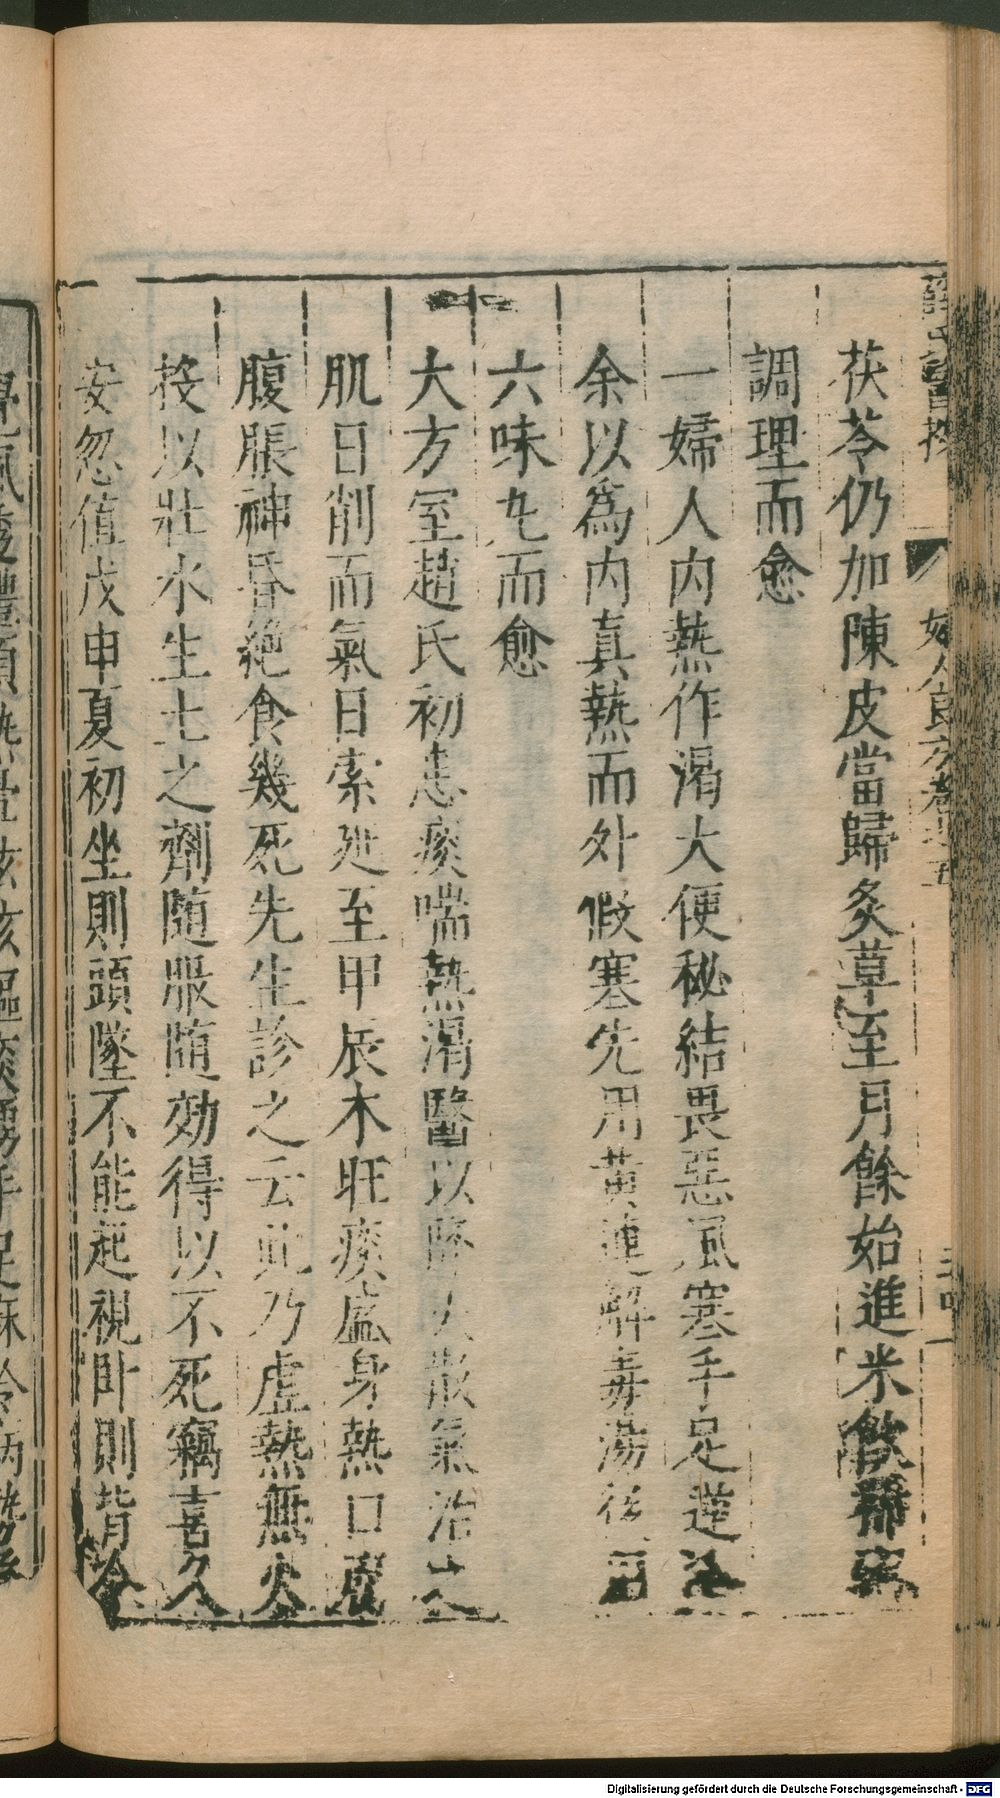 薛氏醫按 婦人良方卷之五
茯苓仍加陳皮當歸炙草至月餘始進米飲稀粥
調理而愈
一婦人内熱作渴大便秘結畏惡風寒手足逆冷
余以為内真熱而外假寒先用黄連解毒湯後用
六味丸而愈
大方室趙氏初患痰喘熱渴醫以降火散氣治之
肌日削而氣日索延至甲辰木旺痰盛身熱口腐
腹脹神昏絶食幾死先生診之云此乃虚熱無火
投以壯水生土之劑随服随効得以不死竊喜久
安忽值戊申夏初坐則頭墜不能起視卧則背冷
Digitalisierung gefördert durch die Deutsche Forschungsgemeinschaft - DFG